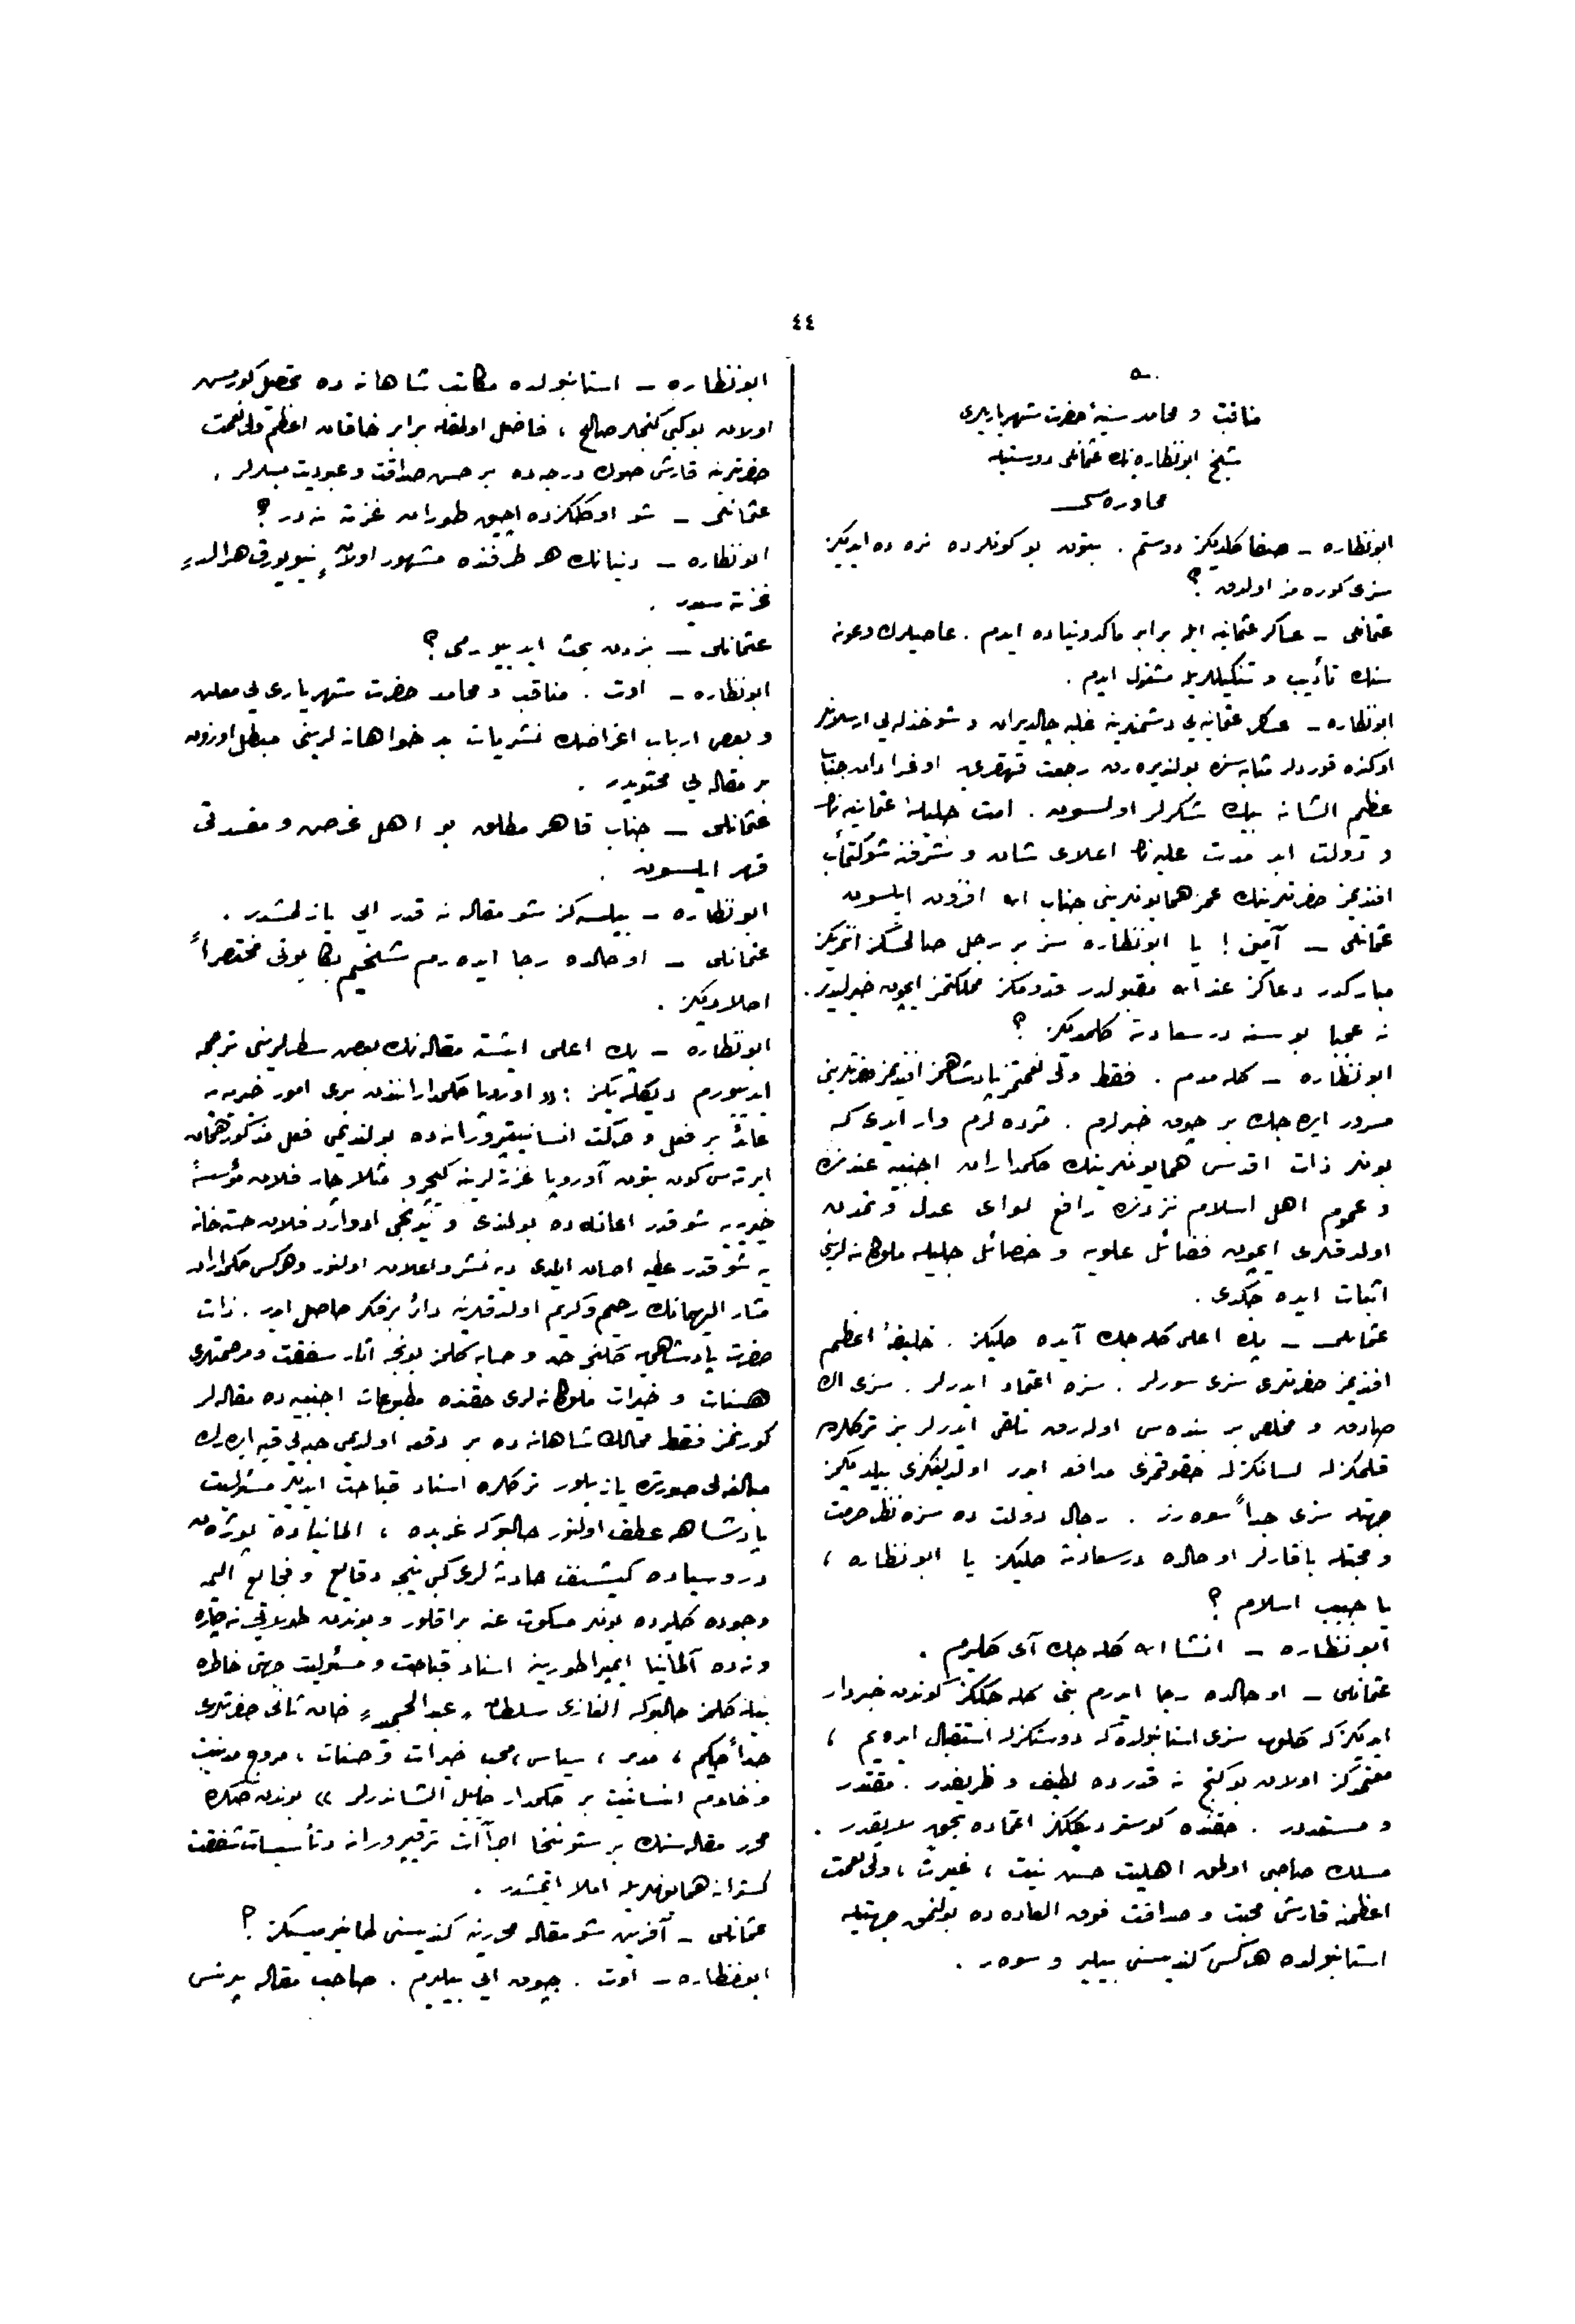 ٤٤
مناقب و محامد سنیۀ حضرت شهریاری
شیخ ابونظاره نك عثمانلی دوستیله
محاوره سی
ابونظاره ـ صفا كلدیكز دوستم . بتون بو كونلرده نره ده ایدیكز
سزی كوره مز اولدق ؟
عثمانلی ـ عساكر عثمانیه ایله برابر ماكدونیاده ایدم . عاصیلرك وعونه
سنك تأدیب و تنكیللریله مشغول ایدم .
ابونظاره ـ عسكر عثمانیه یی دشمنلرینه غلبه چالدیران و شو خذله یی ارسلانلر
اوكنده قوردلر مثابه سنده بولندیره رق رجعت قهقری یه اوغرادان جناب
عظیم الشانه بیك شكرلر اولسون . امت جلیلۀ عثمانیه نك
و دولت ابد مدت علیه نك اعلای شان و شرفنه شوكتمآب
افندیمز حضرتلرینك عمر همایونلرینی جناب الله افزون ایلسون
عثمانلی ـ آمین ! یا ابونظاره سز بر رجل صالحسكز
مباركدر دعاكز عند الله مقبولدر قدومكز مملكتمز ایچون خیرلیدر .
نه عجبا بو سنه درسعادته كلمدیكز ؟
ابونظاره ـ كله مدم . فقط ولی نعمتمز پادشاهمز افندیمز حضرتلرینی
مسرور ایده جك بر چوق خبرلرم . مژده لرم وار ایدی كه
بونلر ذات اقدس همایونلرینك حكمداران اجنبیه عندنده
و عموم اهل اسلام نزدنده رافع لوای عدل و تمدن
اولدقلری ایچون فضائل علویه و خصائل جلیله ملوكانه لرینی
اثبات ایده جكدی .
عثمانلی ـ پك اعلی كله جك آیده كلیكز . خلیفۀ اعظم
افندیمز حضرتلری سزی سورلر . سزه اعتماد ایدرلر . سزی اك
صادق و مخلص بر بنده سی اوله رق تلقی ایدرلر بز تركلرده
قلمكزله لسانكزله حقوقمزی مدافعه ایدر اولدیغكزی بیلدیكمز
جهتله سزی جداً سوه رز . رجال دولت ده سزه نظر حرمت
و محبتله باقارلر او حالده درسعادته كلیكز یا ابونظاره ،
یا حبیب اسلام ؟
ابونظاره ـ انشا الله كله جك آی كلیرم .
عثمانلی ـ او حالده رجا ایدرم بنی كله جككز كوندن خبردار
ایدیكز كه كلوب سزی استانبولده كی دوستلركزله استقبال ایده یم ،
معتمدكز اولان بو كنج نه قدرده لطیف و ظریفدر . مقتدر
و مستعددر . حقنده كوستردیككز اعتماده بحق لایقدر .
مسلك صاحبی اولمق اهلیت حسن نیت ، غیرت ، ولی نعمت
اعظمنه قارشی محبت و صداقت فوق العاده ده بولنمق جهتیله
استانبولده هركس كندیسنی بیلیر و سوه ر .
ابونظاره ـ استانبولده مكاتب شاهانه ده تحصیل كورمش
اولان بو كبی كنجلر صالح ، فاضل اولمقله برابر خاقان اعظم ولی نعمت
حضرتلرینه قارشی صوك درجه ده بر حسن صداقت و عبودیت بسلرلر .
عثمانلی ـ شو اوككزده آچیق طوران غزته نه در ؟
ابونظاره ـ دنیانك هر طرفنده مشهور اولان «نیویورق هرالد»
غزته سیدر .
عثمانلی ـ بزدن بحث ایدییورمی ؟
ابونظاره ـ اوت . مناقب و محامد حضرت شهریاری یی معلن
و بعض ارباب اغراضك نشریات بدخواهانه لرینی مبطل اوزون
بر مقاله یی محتویدر .
عثمانلی ـ جناب قاهر مطلق بو اهل غرض و مفسدتی
قهر ایلسون .
ابونظاره ـ بیلسه كز شو مقاله نه قدر ایی یازلمشدر .
عثمانلی ـ او حالده رجا ایده رم شیخم بكا بونی مختصراً
اكلاديكز .
ابونظاره ـ پك اعلی ایشته مقاله نك بعض سطرلرینی ترجمه
ایدییورم دیكله یكز : «اوروپا حكمدارانندن بری امور خیریه یه
عائد بر فعل و حركت انسانیتپرورانه ده بولندیمی فعل مذكور همان
ایرته سی كون بتون آوروپا غزته لرینه كچر و مثلا چار فلان مؤسسۀ
خیریه یه شو قدر اعانه ده بولندی و یدنجی ادوارد فلان خسته خانه
یه شو قدر عطیه احسان ایلدی دیه نشر و اعلان اولنور و هركس حكمداران
مشار الیهمانك رحیم و كریم اولدقلرینه دائر بر فكر حاصل ایدر . ذات
حضرت پادشاهی یه كلنجه حد و حسابه كلمز بونجه آثار شفقت و مرحمتلری
حسنات و خیرات ملوكانه لری حقنده مطبوعات اجنبیه ده مقاله لر
كورلمز فقط ممالك شاهانه ده بر وقعه اولدیمی حبه یی قبه ایده رك
مبالغه لی صورتده یازیلور تركلره اسناد قباحت ایدیلیر مسئولیت
پادشاهه عطف اولنور حالبوكه غریبدر ، المانیاده
و روسیاده كیشنف حادثه لری كبی نیجه وقایع و فجایع الیمه
وجوده كلیرده بونلر مسكوت عنه براقلور و بوندن طولایی نه چاره
و نه ده آلمانیا ایمپراطورینه اسناد قباحت و مسئولیت جهتی خاطره
بیله كلمز حالبوكه الغازی سلطان «عبد الحمید» خان ثانی حضرتلری
جداً حكیم ، مدبر ، سیاسی ، محب خیرات و حسنات ، مروج مدنیت
و خادم انسانیت بر حكمدار جلیل الشاندرلر » بوندن صكره
محرر مقاله سنك بر ستوننی اجراآت ترقیپرورانه و تأسیسات شفقت
كسترانه همایونلریله املا ایتمشدر .
عثمانلی ـ آفرین شو مقاله محررینه كندیسنی طانیرمیسكز ؟
ابونظاره ـ اوت . چوق ایی بیلیرم . صاحب مقاله پرنس